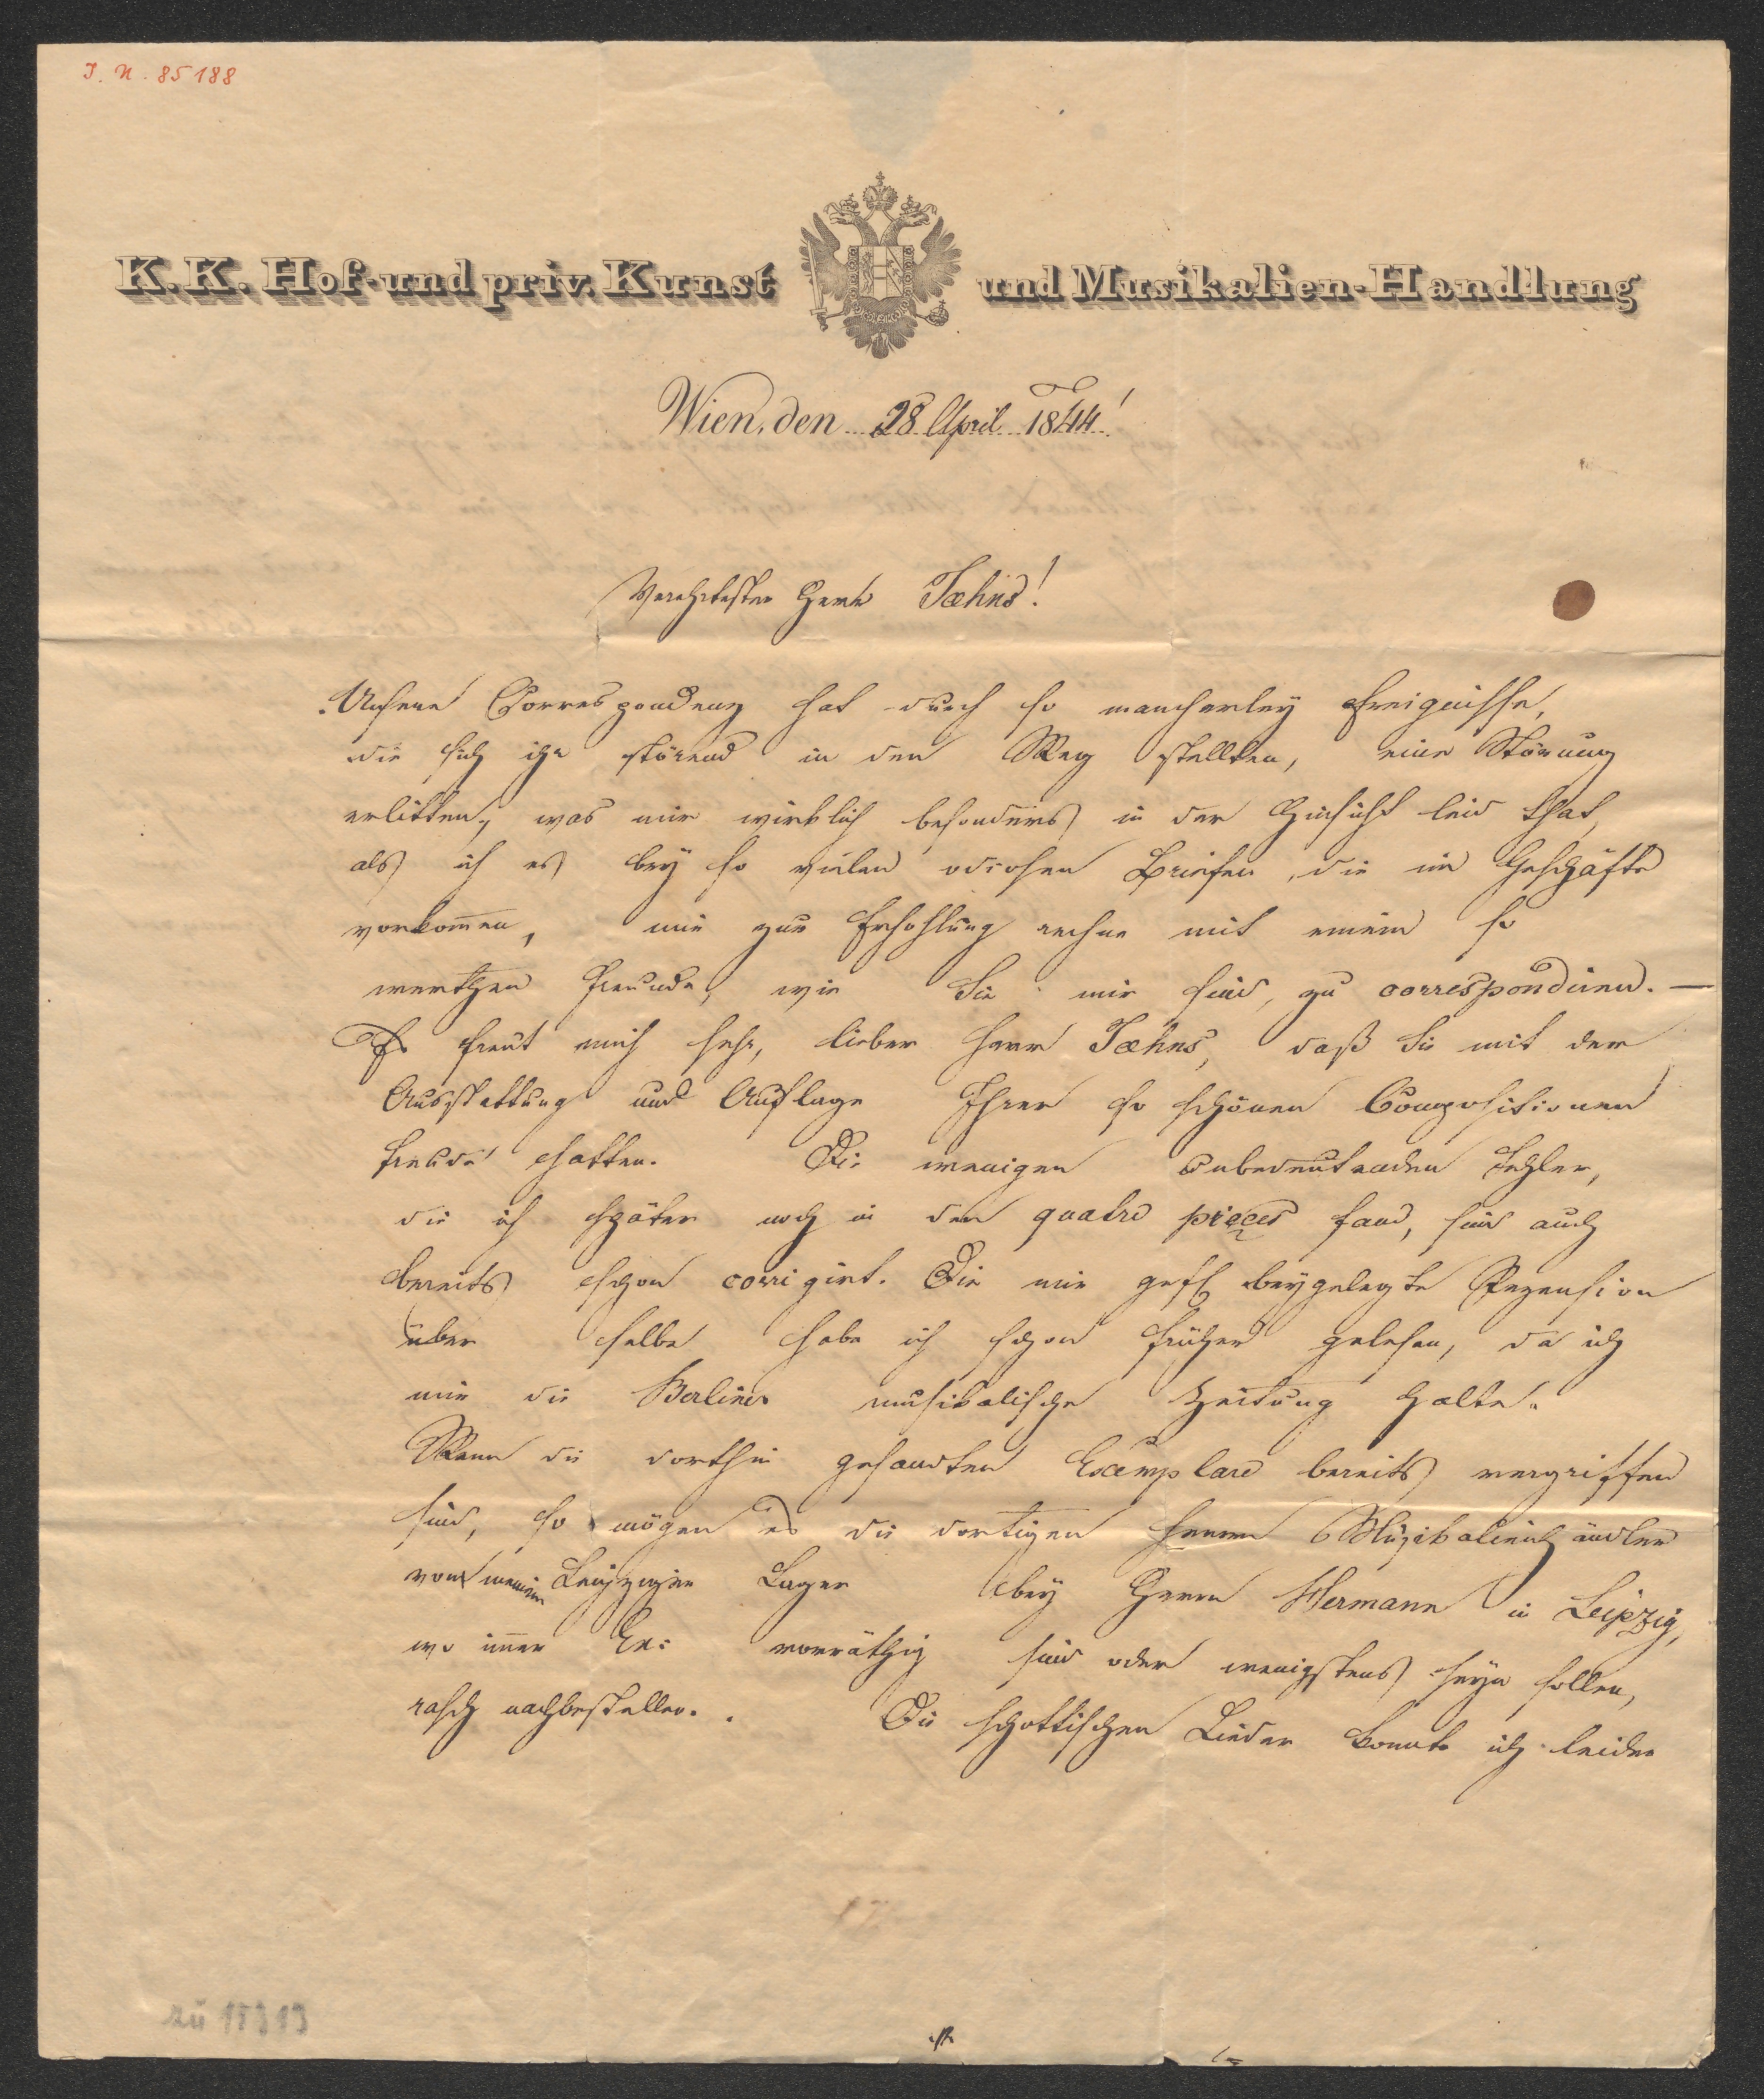 J. N. 85188
K. K. Hof- und priv. Kunst und Musikalien-Handlung
Wien, den 28 April 1844!
Verehrtester Herr Jæhns!
Unsere Correspondenz hat durch so mancherley Ereignisse,
die sich ihr störend in den Weg stellten, eine Störung
erlitten, was mir wirklich besonders in der Hinsicht leid that,
als ich es bey so vielen odiosen Briefen, die im Geschäfte
vorkom̄en, mir zur Erhohlung rechne mit einem so
werthen Freunde, wie Sie mir sind, zu correspondiren. —
Es freut mich sehr, lieber Herr Jæhns, daß Sie mit der
Ausstattung und Auflage Ihrer so schönen Compositionen
Freude hatten. Die wenigen unbedeutenden Fehler,
die ich später noch in den quatre pieces fand, sind auch
bereits schon corrigirt. Die mir gefl beygelegte Rezension
über selbe habe ich schon früher gelesen, da ich
mir die Berliner musikalische Zeitung halte.
Wenn die dorthin gesandten Exemplare bereits vergriffen
sind, so mögen es die dortigen Herren Musikalienhändler
vom meinem Leipziger Lager bey Herrn Hermann in Leipzig,
wo im̄er Ex: vorräthig sind oder wenigstens seyn sollen,
rasch nachbestellen. Die schottischen Lieder konnte ich leider
zu 15313